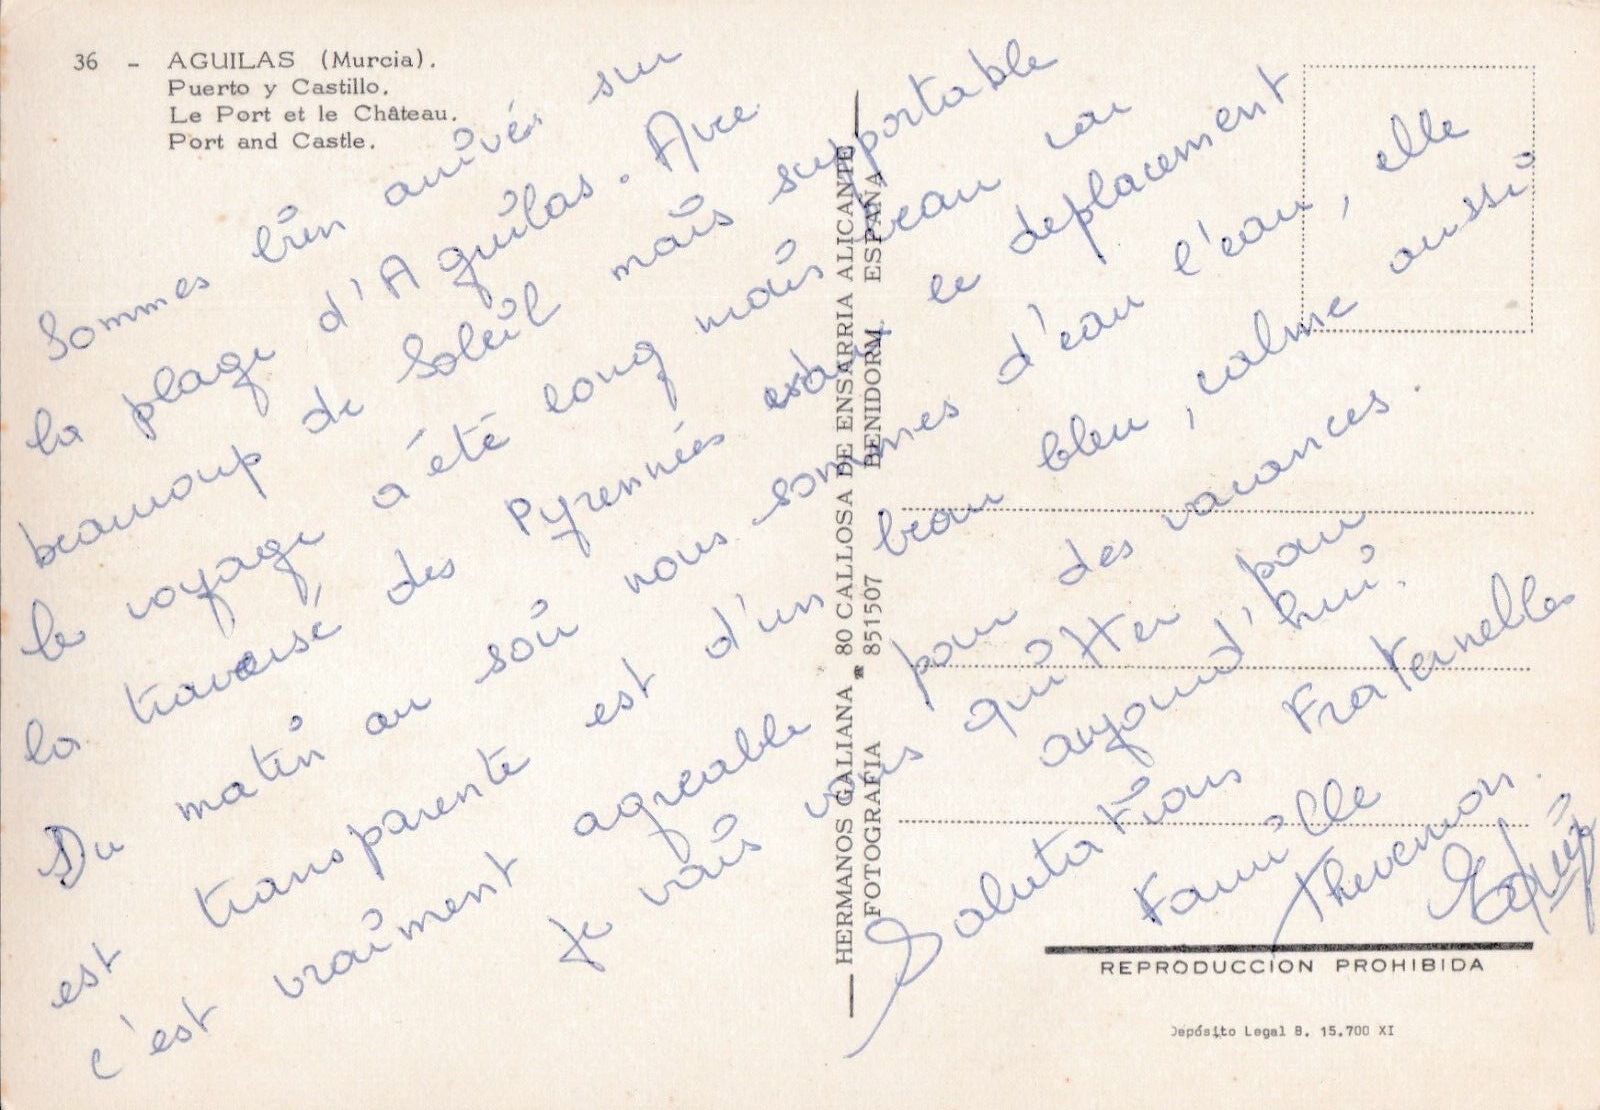 36 - AGUILAS (Murcia).
Puerto y Castillo.
Le Port et le Château.
Port and Castle.
Sommes bien arrivés sur
la plage d'Aguilas. Avec
beaucoup de Soleil mais supportable
le voyage a été long mais beau car
la traversé des Pyrennées le deplacement
Du matin au soir nous sommes d'eau l'eau, elle
est transparente est d'un beau bleu, calme aussi
c'est vraiment agreable pour des vacances.
Je vais vous quitter pour
aujourd'hui.
Salutations Fraternelles
Famille
Thevenon.
HERMANOS GALIANA. 80 CALLOSA DE ENSARRIA ALICANTE
FOTOGRAFIA ☎ 851507 BENIDORM ESPAÑA
REPRODUCCION PROHIBIDA
Depósito Legal B. 15.700 XI